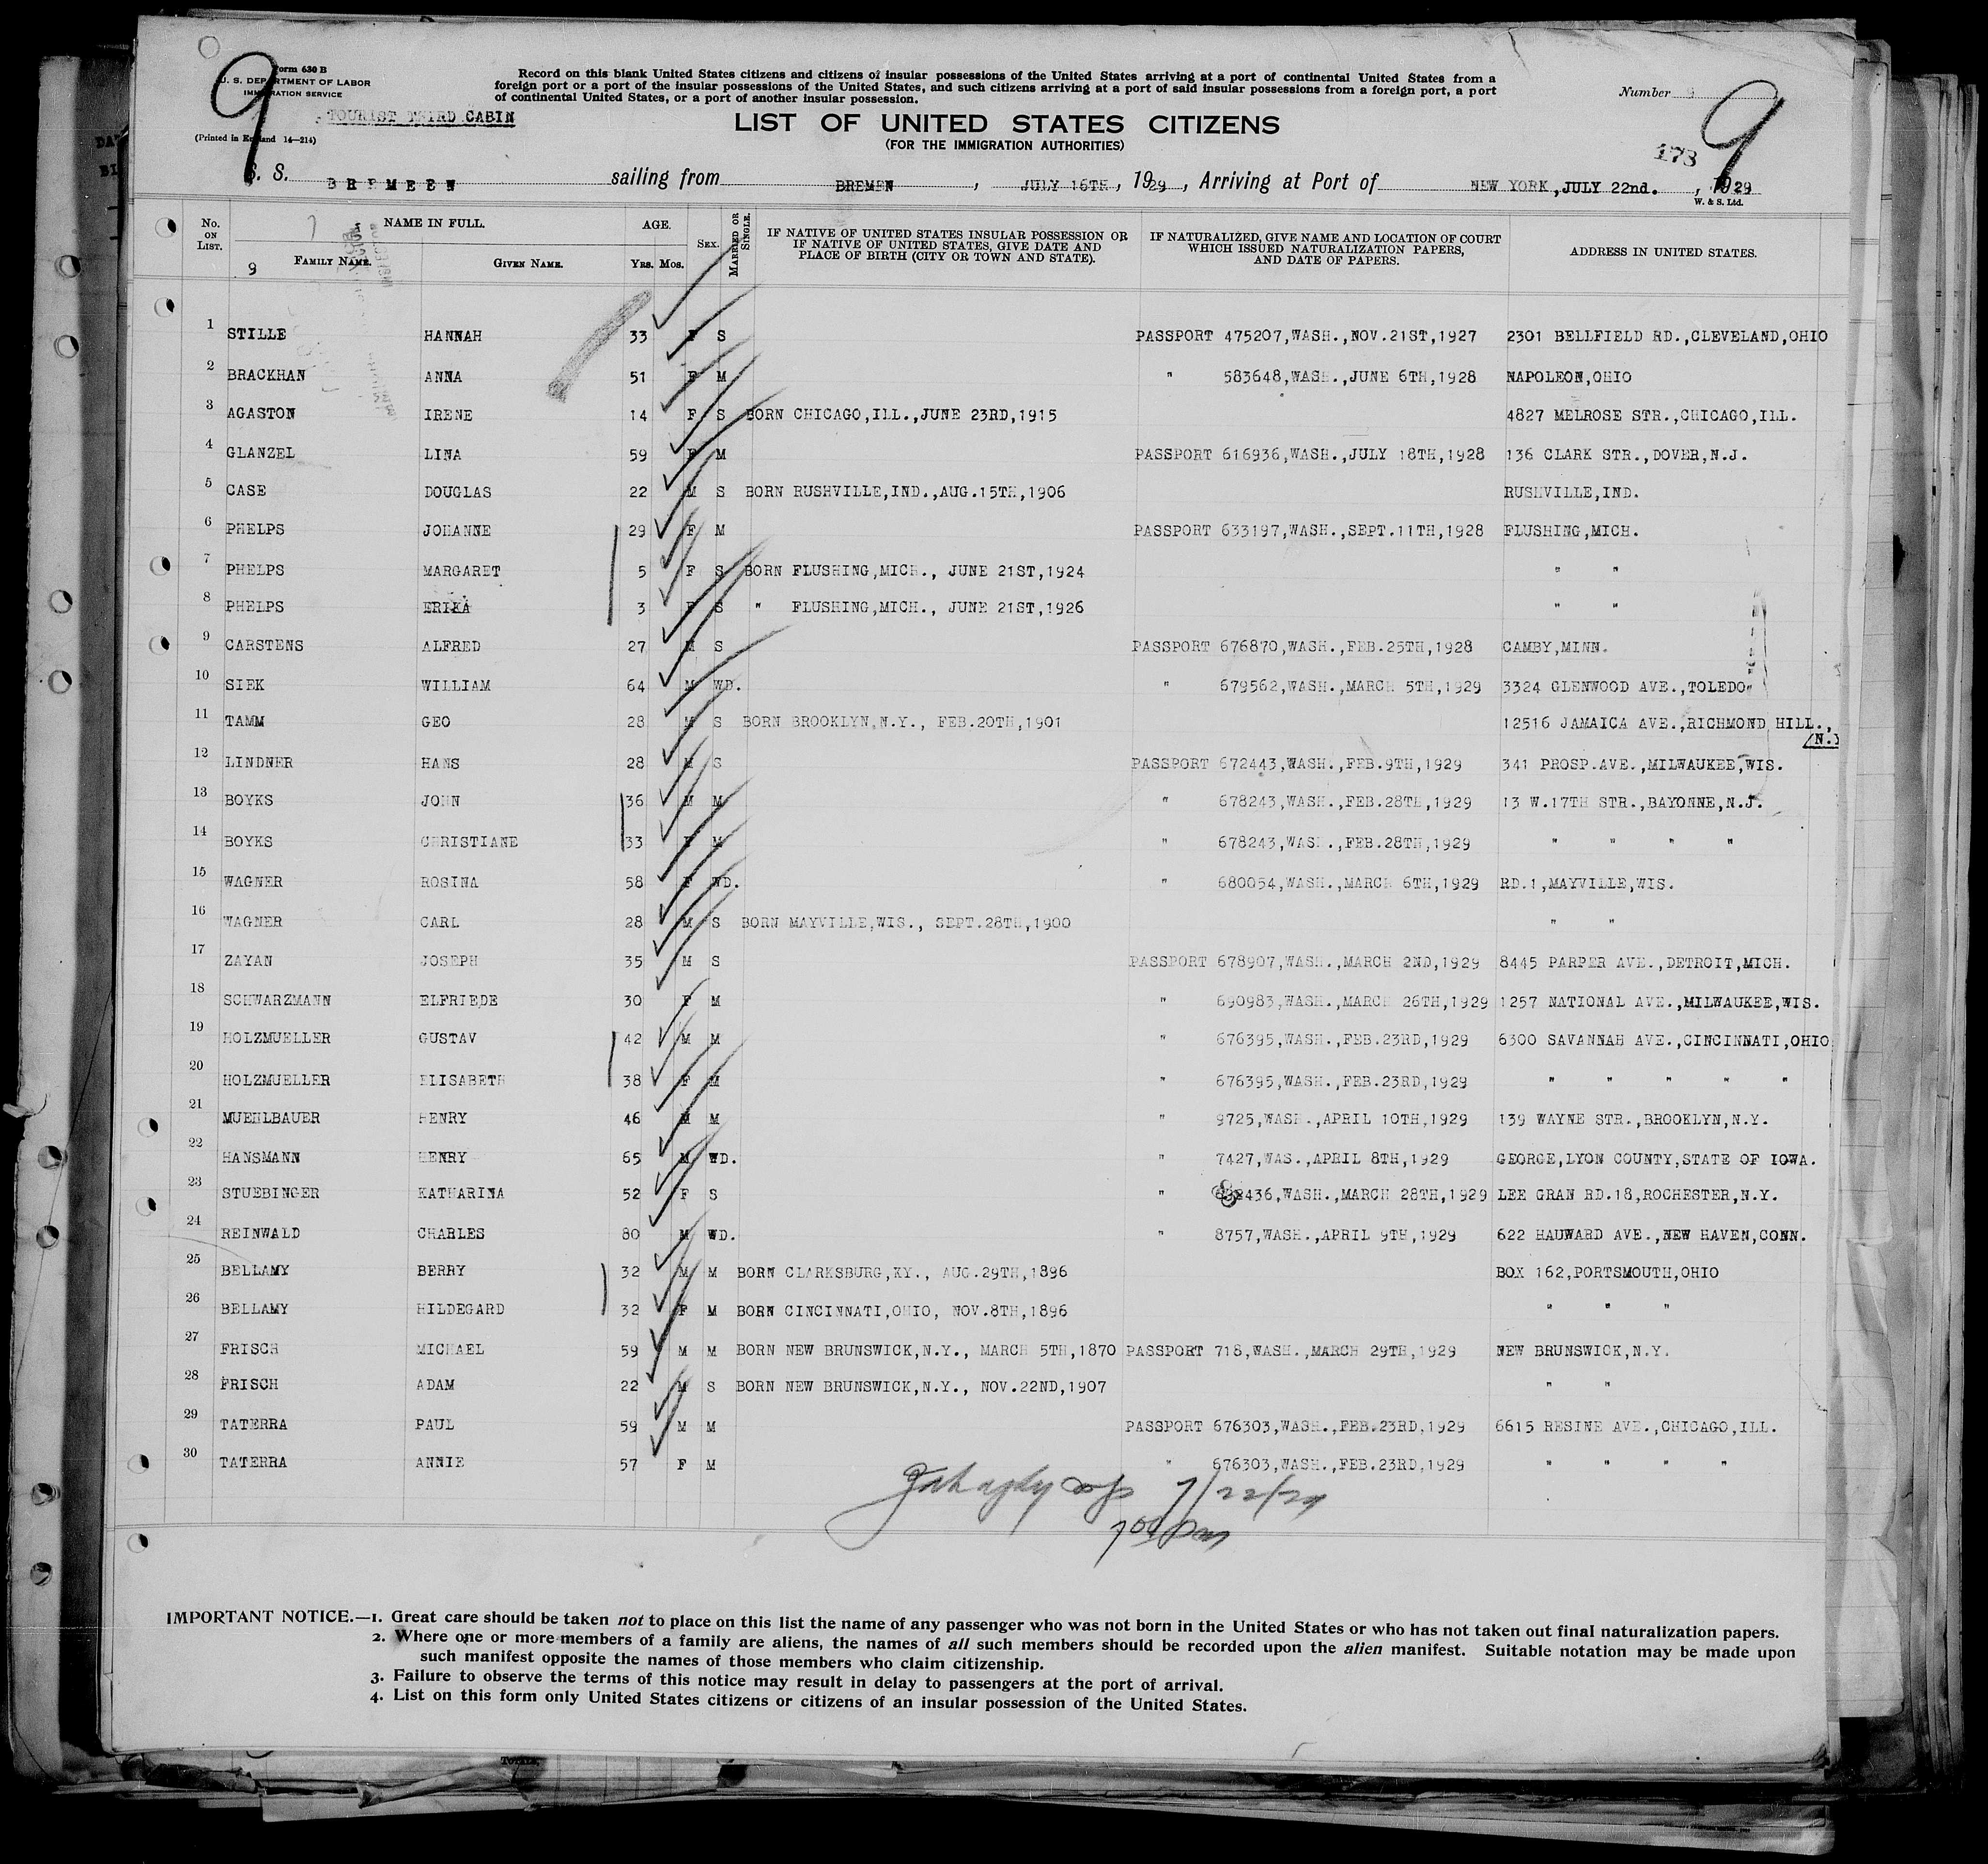 9
Form 630 B
U. S. DEPARTMENT OF LABOR
IMMIGRATION SERVICE
TOURIST THIRD CABIN
(Printed in England 14—214)
Record on this blank United States citizens and citizens of insular possessions of the United States arriving at a port of continental United States from a
foreign port or a port of the insular possessions of the United States, and such citizens arriving at a port of said insular possessions from a foreign port, a port
of continental United States, or a port of another insular possession.
Number 9
9
LIST OF UNITED STATES CITIZENS
(FOR THE IMMIGRATION AUTHORITIES)
173
S. S. BREMEEN sailing from BREMEN, JULY 16TH, 1929, Arriving at Port of NEW YORK, JULY 22nd., 1929
W. & S. Ltd.
No. ON LIST. NAME IN FULL. FAMILY NAME. GIVEN NAME. AGE. Yrs. Mos. SEX. MARRIED OR SINGLE. IF NATIVE OF UNITED STATES INSULAR POSSESSION OR IF NATIVE OF UNITED STATES, GIVE DATE AND PLACE OF BIRTH (CITY OR TOWN AND STATE). IF NATURALIZED, GIVE NAME AND LOCATION OF COURT WHICH ISSUED NATURALIZATION PAPERS, AND DATE OF PAPERS. ADDRESS IN UNITED STATES.
9
1 STILLE HANNAH 33 F S PASSPORT 475207,WASH.,NOV.21ST,1927 2301 BELLFIELD RD.,CLEVELAND,OHIO
2 BRACKHAN ANNA 51 F M " 583648,WASH.,JUNE 6TH,1928 NAPOLEON,OHIO
3 AGASTON IRENE 14 F S BORN CHICAGO,ILL.,JUNE 23RD,1915 4827 MELROSE STR.,CHICAGO,ILL.
4 GLANZEL LINA 59 F M PASSPORT 616936,WASH.,JULY 18TH,1928 136 CLARK STR.,DOVER,N.J.
5 CASE DOUGLAS 22 M S BORN RUSHVILLE,IND.,AUG.15TH,1906 RUSHVILLE,IND.
6 PHELPS JOHANNE 29 F M PASSPORT 633197,WASH.,SEPT.11TH,1928 FLUSHING,MICH.
7 PHELPS MARGARET 5 F S BORN FLUSHING,MICH., JUNE 21ST,1924 " "
8 PHELPS ERIKA 3 F S " FLUSHING,MICH., JUNE 21ST,1926 " "
9 CARSTENS ALFRED 27 M S PASSPORT 676870,WASH.,FEB.25TH,1928 CAMBY,MINN.
10 SIEK WILLIAM 64 M WD. " 679562,WASH.,MARCH 5TH,1929 3324 GLENWOOD AVE.,TOLEDO
11 TAMM GEO 28 M S BORN BROOKLYN,N.Y., FEB.20TH,1901 12516 JAMAICA AVE.,RICHMOND HILL.,
/N.Y
12 LINDNER HANS 28 M S PASSPORT 672443,WASH.,FEB.9TH,1929 341 PROSP.AVE.,MILWAUKEE,WIS.
13 BOYKS JOHN 36 M M " 678243,WASH.,FEB.28TH,1929 13 W.17TH STR.,BAYONNE,N.J.
14 BOYKS CHRISTIANE 33 F M " 678243,WASH.,FEB.28TH,1929 " " " "
15 WAGNER ROSINA 58 F WD. " 680054,WASH.,MARCH 6TH,1929 RD.1,MAYVILLE,WIS.
16 WAGNER CARL 28 M S BORN MAYVILLE,WIS., SEPT.28TH,1900 " "
17 ZAYAN JOSEPH 35 M S PASSPORT 678907,WASH.,MARCH 2ND,1929 8445 PARPER AVE.,DETROIT,MICH.
18 SCHWARZMANN ELFRIEDE 30 F M " 690983,WASH.,MARCH 26TH,1929 1257 NATIONAL AVE.,MILWAUKEE,WIS.
19 HOLZMUELLER GUSTAV 42 M M " 676395,WASH.,FEB.23RD,1929 6300 SAVANNAH AVE.,CINCINNATI,OHIO
20 HOLZMUELLER ELISABETH 38 F M " 676395,WASH.,FEB.23RD,1929 " " " " "
21 MUEHLBAUER HENRY 46 M M " 9725,WASH.,APRIL 10TH,1929 139 WAYNE STR.,BROOKLYN,N.Y.
22 HANSMANN HENRY 65 M WD. " 7427,WAS.,APRIL 8TH,1929 GEORGE,LYON COUNTY,STATE OF IOWA.
23 STUEBINGER KATHARINA 52 F S " WASH.,MARCH 28TH,1929 LEE GRAN RD.18,ROCHESTER,N.Y.
24 REINWALD CHARLES 80 M WD. " 8757,WASH.,APRIL 9TH,1929 622 HAUWARD AVE.,NEW HAVEN,CONN.
25 BELLAMY BERRY 32 M M BORN CLARKSBURG,KY., AUG.29TH,1896 BOX 162,PORTSMOUTH,OHIO
26 BELLAMY HILDEGARD 32 F M BORN CINCINNATI,OHIO, NOV.8TH,1896 " " "
27 FRISCH MICHAEL 59 M M BORN NEW BRUNSWICK,N.Y., MARCH 5TH,1870 PASSPORT 718,WASH.,MARCH 29TH,1929 NEW BRUNSWICK,N.Y.
28 FRISCH ADAM 22 M S BORN NEW BRUNSWICK,N.Y., NOV.22ND,1907 " "
29 TATERRA PAUL 59 M M PASSPORT 676303,WASH.,FEB.23RD,1929 6615 RESINE AVE.,CHICAGO,ILL.
30 TATERRA ANNIE 57 F M " 676303,WASH.,FEB.23RD,1929 " " " "
7/22/29
7 00 pm
IMPORTANT NOTICE.—1. Great care should be taken not to place on this list the name of any passenger who was not born in the United States or who has not taken out final naturalization papers.
2. Where one or more members of a family are aliens, the names of all such members should be recorded upon the alien manifest. Suitable notation may be made upon
such manifest opposite the names of those members who claim citizenship.
3. Failure to observe the terms of this notice may result in delay to passengers at the port of arrival.
4. List on this form only United States citizens or citizens of an insular possession of the United States.